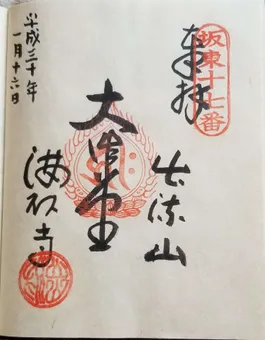 坂東十七番
奉拝
出流山
大悲殿
満願寺
平成三十年
一月十六日